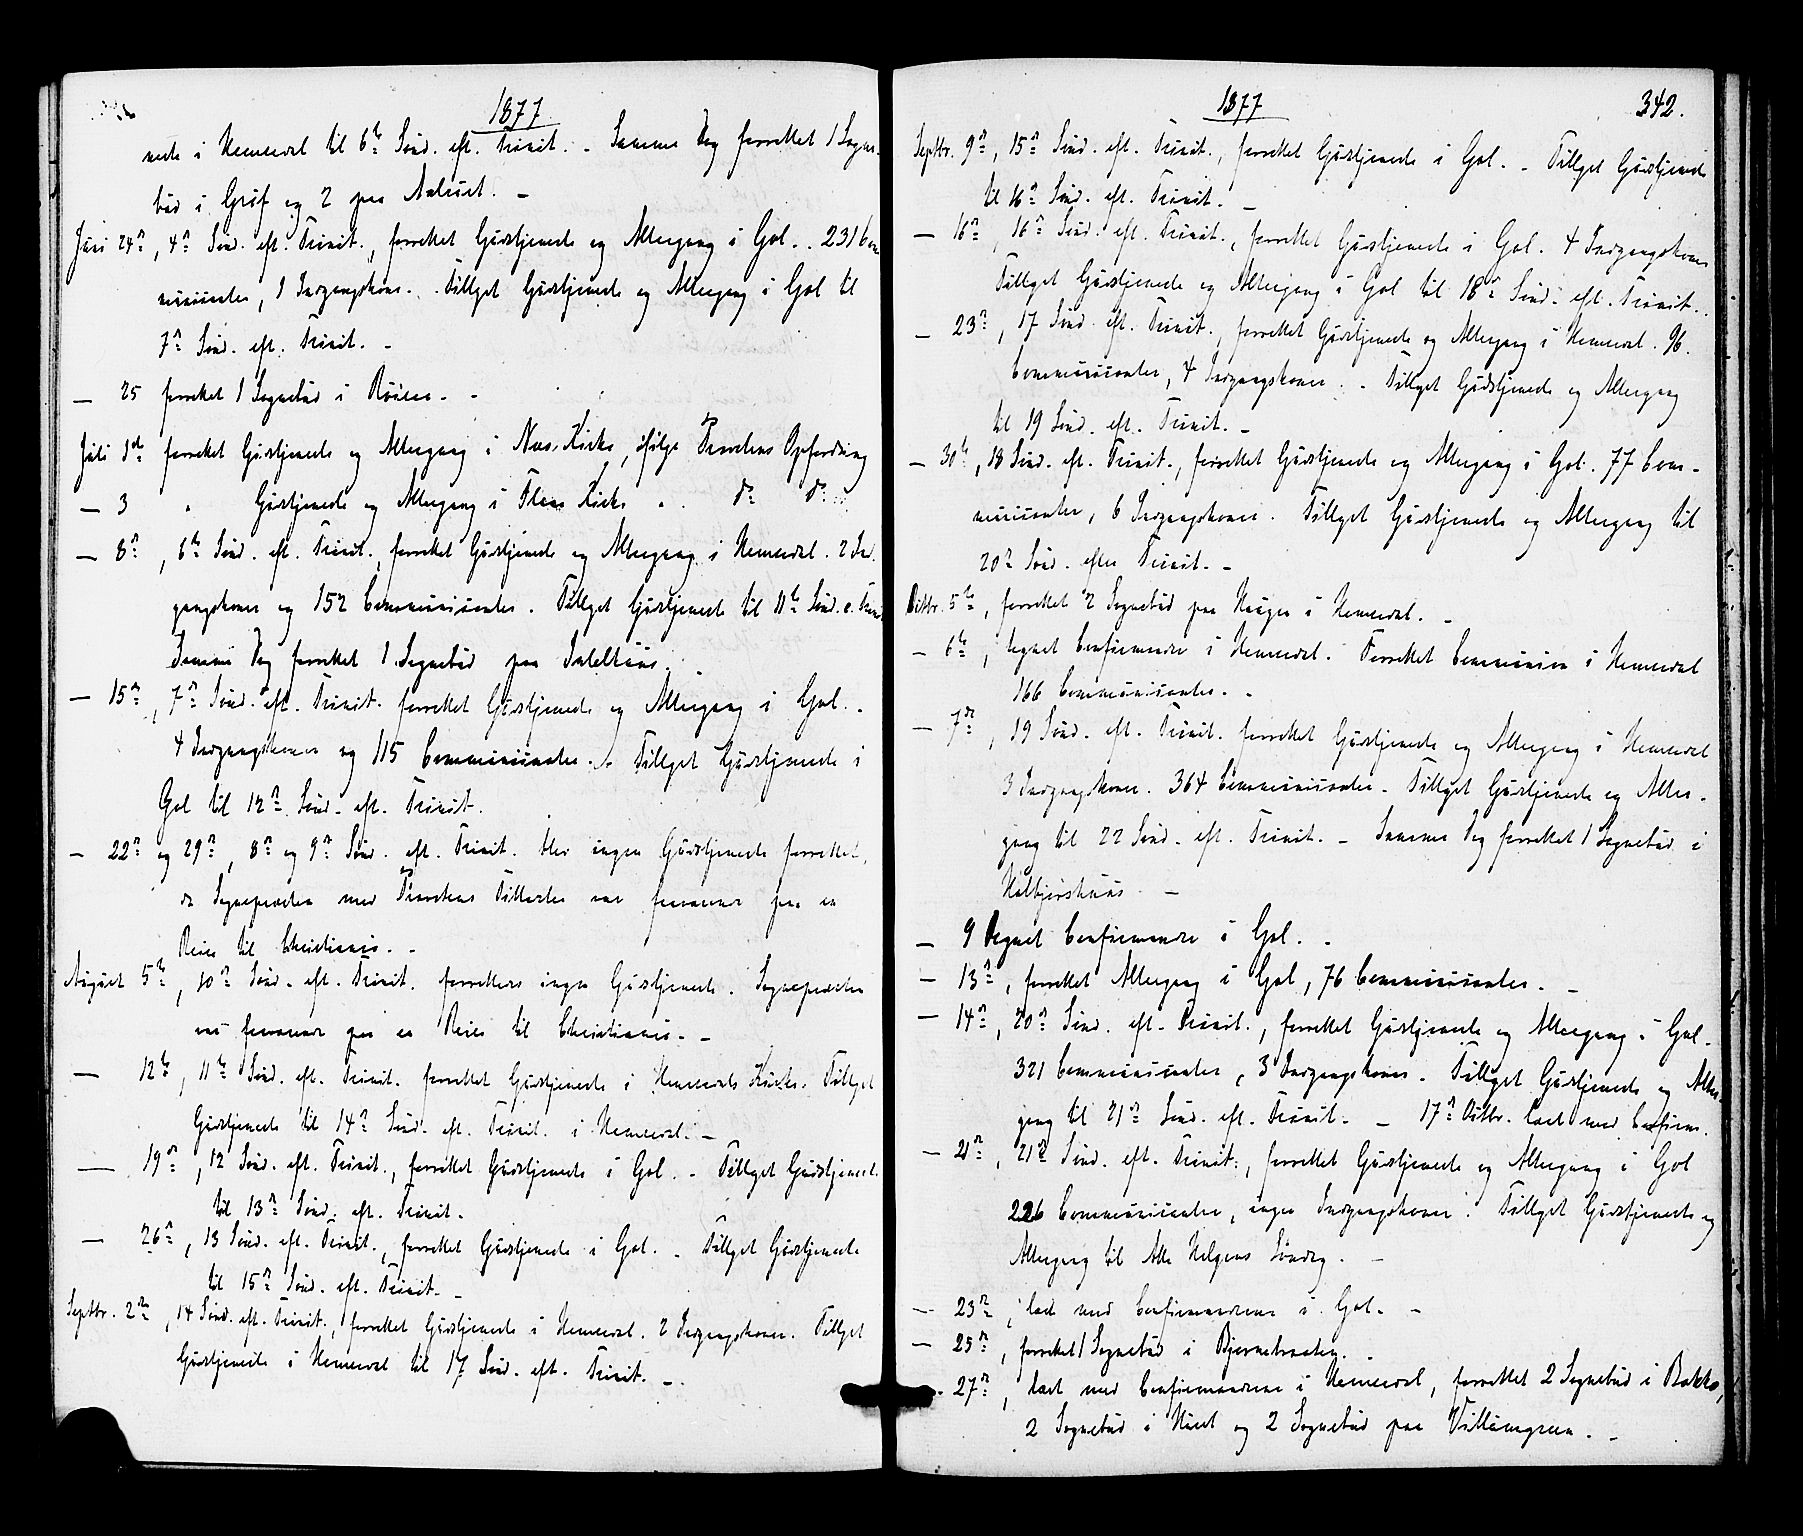 1877
neste i Hemsedal til 6te Sønd. eft. Trinit. - Samme Dag forrettet 1 Sogne-
bud i Grøf og 2 paa
Juni 24de, 4de Sønd. eft. Trinit., forrettet Gudstjeneste og Altergang i Gol. 231 Com
municanter, 1 Indgangskone. Tillyst Gudstjeneste og Altergang i Gol til
7de Sønd. eft. Trinit. -
— 25 forrettet 1 Sognebud i
Juli 1ste forrettet Gudstjeneste og Altergang i Næs Kirke, ifølge Provstens Opfordring
— 3 " Gudstjeneste og Altergang i Flaa Kirke " do do
— 8de, 6te Sønd. eft. Trinit. forrettet Gudstjeneste og Altergang i Hemsedal. 2 Ind-
gangskoner og 152 Communicanter. Tillyst Gudstjeneste til 11te Sønd. e. Trinit.
Samme Dag forrettet 1 Sognebud paa
— 15de, 7de Sønd. eft. Trinit. forrettet Gudstjeneste og Altergang i Gol. -
4 Indgangskoner og 115 Communicanter. - Tillyst Gudstjeneste i
Gol til 12de Sønd. eft. Trinit.
— 22de og 29de, 8de og 9de Sønd. eft. Trinit. blev ingen Gudstjeneste forrettet,
da Sognepræsten med Provstens Tilladelse var fraværende paa en
Reise til Christiania. -
August 5te, 10de Sønd. eft. Trinit. forrettedes ingen Gudstjeneste. Sognepræsten
var fraværende paa en Reise til Christiania. -
— 12te, 11te Sønd. eft. Trinit. forrettet Gudstjeneste i Hemsedals Kirke. Tillyst
Gudstjeneste til 14de Sønd. eft. Trinit. i Hemsedal. -
— 19de, 12 Sønd. eft. Trinit., forrettet Gudstjeneste i Gol. - Tillyst Gudstjeneste
til 13de Sønd. eft. Trinit.
— 26de, 13 Sønd. eft. Trinit., forrettet Gudstjeneste i Gol. - Tillyst Gudstjeneste
til 15de Sønd. eft. Trinit. -
Septbr. 2den, 14 Sønd. eft. Trinit., forrettet Gudstjeneste i Hemsedal. 2 Indgangskoner. Tillyst
Gudstjeneste i Hemsedal til 17 Sønd. eft. Trinit. -
1877
342.
Septbr. 9de, 15de Sønd. eft. Trinit., forrettet Gudstjeneste i Gol. - Tillyst Gudstjeneste
til 16de Sønd. eft. Trinit. -
— 16de, 16de Sønd. eft. Trinit., forrettet Gudstjeneste i Gol. 4 Indgangskoner
Tillyst Gudstjeneste og Altergang i Gol til 18de Sønd. eft. Trinit.
— 23de, 17 Sønd. eft. Trinit., forrettet Gudstjeneste og Altergang i Hemsedal. 96
Communicanter, 4 Indgangskoner. - Tillyst Gudstjeneste og Altergang
til 19 Sønd. eft. Trinit. -
— 30te, 18 Sønd. eft. Trinit., forrettet Gudstjeneste og Altergang i Gol. 77 Com-
municanter, 6 Indgangskoner. Tillyst Gudstjeneste og Altergang til
20de Sønd. efter Trinit. -
Octbr. 5te, forrettet 2 Sognebud paa Haugen i Hemsedal. -
— 6te, tegnet Confirmander i Hemsedal. Forrettet Communion i Hemsedal
166 Communicanter. -
— 7de, 19 Sønd. eft. Trinit. forrettet Gudstjeneste og Altergang i Hemsedal
3 Indgangskoner. 364 Communicanter. Tillyst Gudstjeneste og Alter-
gang til 22 Sønd. eft. Trinit. - Samme Dag forrettet 1 Sognebud i
—
— 9 tegnet Confirmander i Gol. -
— 13de, forrettet Altergang i Gol, 76 Communicanter. -
— 14de, 20de Sønd. eft. Trinit., forrettet Gudstjeneste og Altergang i Gol.
321 Communicanter, 3 Indgangskoner. Tillyst Gudstjeneste og Alter-
gang til 21de Sønd. eft. Trinit. - 17de Octbr. læst med Confirm.
— 21de, 21de Sønd. eft. Trinit., forrettet Gudstjeneste og Altergang i Gol
226 Communicanter, ingen Indgangskoner. Tillyst Gudstjeneste og
Altergang til Alle Helgens Søndag. -
— 23de, læst med Confirmanderne i Gol. -
— 25de, forrettet 1 Sognebud i Bjørnebraaten.
— 27de, læst med Confirmanderne i Hemsedal, forrettet 2 Sognebud i Bakke,
2 Sognebud i og 2 Sognebud paa -